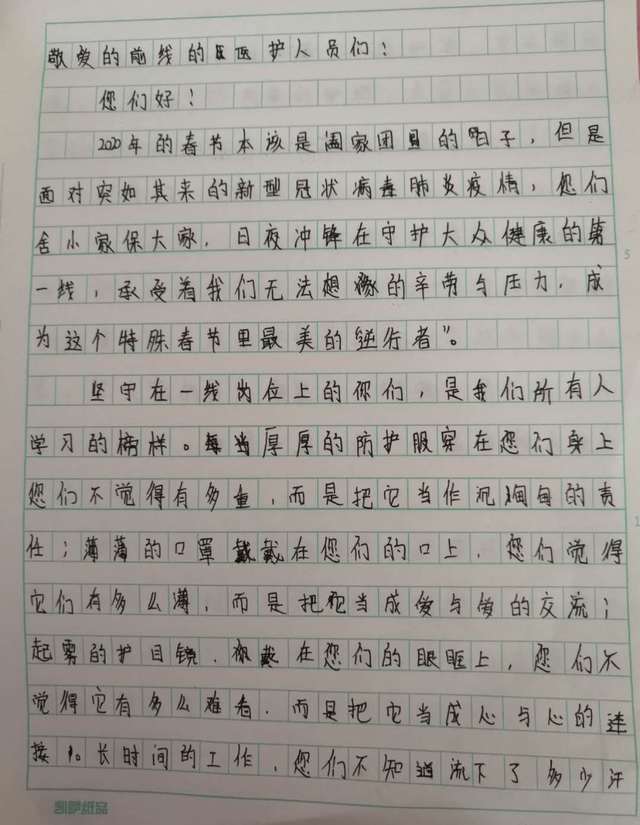 敬爱的前线的医护人员们：
您们好！
2020年的春节本该是阖家团圆的日子，但是
面对突如其来的新型冠状病毒肺炎疫情，您们
舍小家保大家，日夜冲锋在守护大众健康的第
一线，承受着我们无法想像的辛劳与压力，成
为这个特殊春节里最美的“逆行者”。
坚守在一线岗位上的你们，是我们所有人
学习的榜样。每当厚厚的防护服穿在您们身上
您们不觉得有多重，而是把它当作沉甸甸的责
任；薄薄的口罩戴在您们的口上，您们觉得
它们有多么薄，而是把它当成爱与爱的交流；
起雾的护目镜，戴在您们的眼眶上，您们不
觉得它有多么难看，而是把它当成心与心的连
接。长时间的工作，您们不知道流下了多少汗